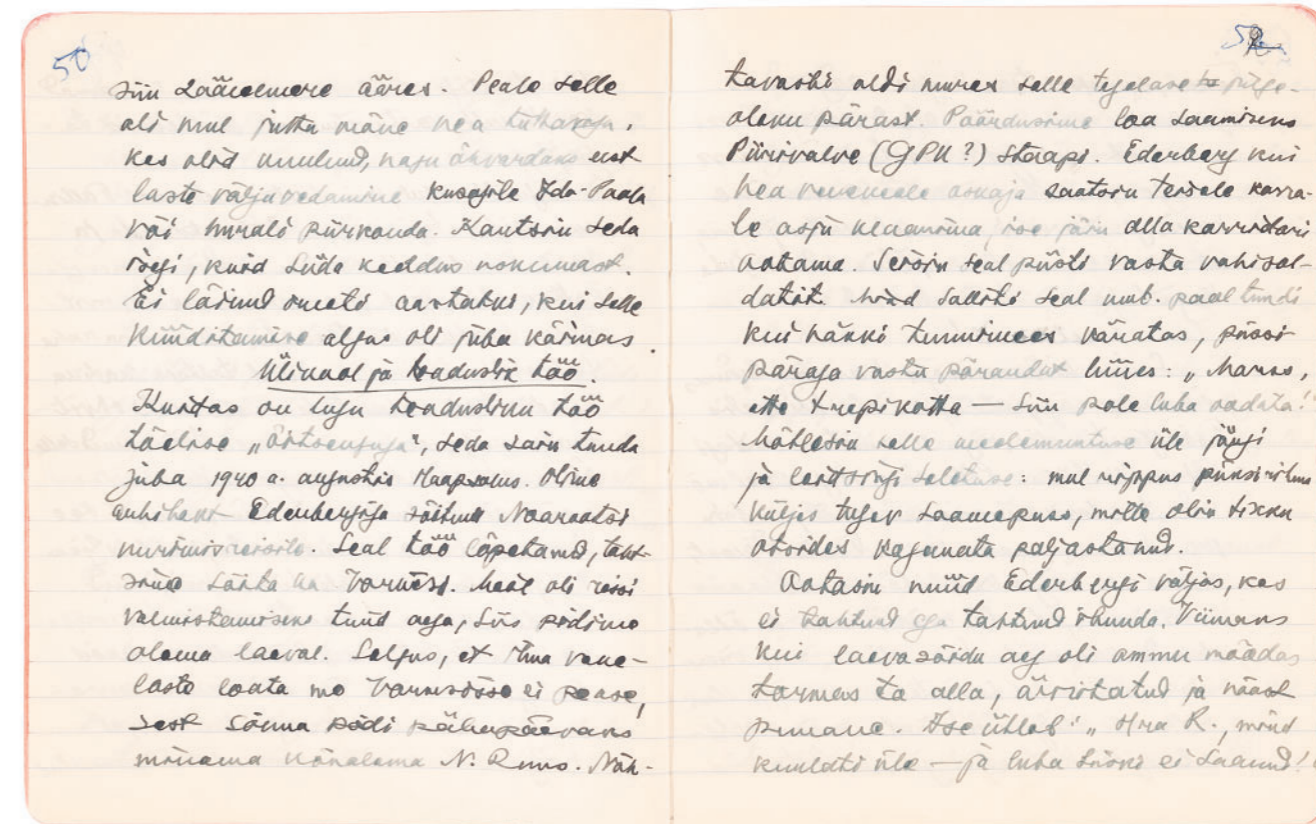 50
siin Läänemere ääres. Peale selle
oli mul juttu mõne hea tuttavaga,
kes olid kuulnud, nagu ähvardaks eest
laste väljavedamine kusagile Ida-Paala
või Uurali piirkonda. Kartsin seda
isegi, kuid Siida keeldus uskumast.
Ei läinud ometi aastatki, kui selle
küüditamise algus oli juba käimas.
Ülikool ja teaduslik töö.
Kuidas on lugu teadusliku töö
tõelise „õitsenguga", seda sain tunda
juba 1940 a. augustis Haapsalus. Olime
Ederbergiga sõitnud Noarootsi
uurimisreisile. Seal töö lõpetanud, taht-
sime sõita ka Vormsi. Meil oli reisi
valmistamiseks tund aega, siis pidime
olema laeval. Selgus, et ilma vene-
laste loata me Vormsisse ei pääse,
sest sõnna pidi pähepäevaks
mõnama kõnelema N. Ruus. Näh-
52
tavasti oldi mures selle tegelase julge-
oleku pärast. Pöördusime loa saamiseks
Piirivalve (GPU?) staapi. Ederberg kui
hea venekeele oskaja saatsin teisele korra-
le asju klaarima, ise jäin alla koridori
ootama. Seisin seal püsti vastu vahisol-
datit. Mind salliti seal umb. pool tundi
kui äkki tunnimees käratas, püssi
päraga vastu põrandat lüües: „Marss,
ette trepikotta — siin pole luba oodata!"
Mõtlesin selle meelemuutuse üle järgi
ja leidsingi seletuse: mul rippus püksirihma
küljes tugev saamepuss, mille olin tikku
otsides kogemata paljastanud.
Ootasin nüüd Ederbergi väljas, kes
ei tahtnud ega tahtnud ilmuda. Viimaks
kui laevasõidu aeg oli ammu möödas
tormas ta alla, ärritatud ja näost
punane. Ise ütleb: „Hra R., mind
kuulati üle — ja luba siiski ei saanud!